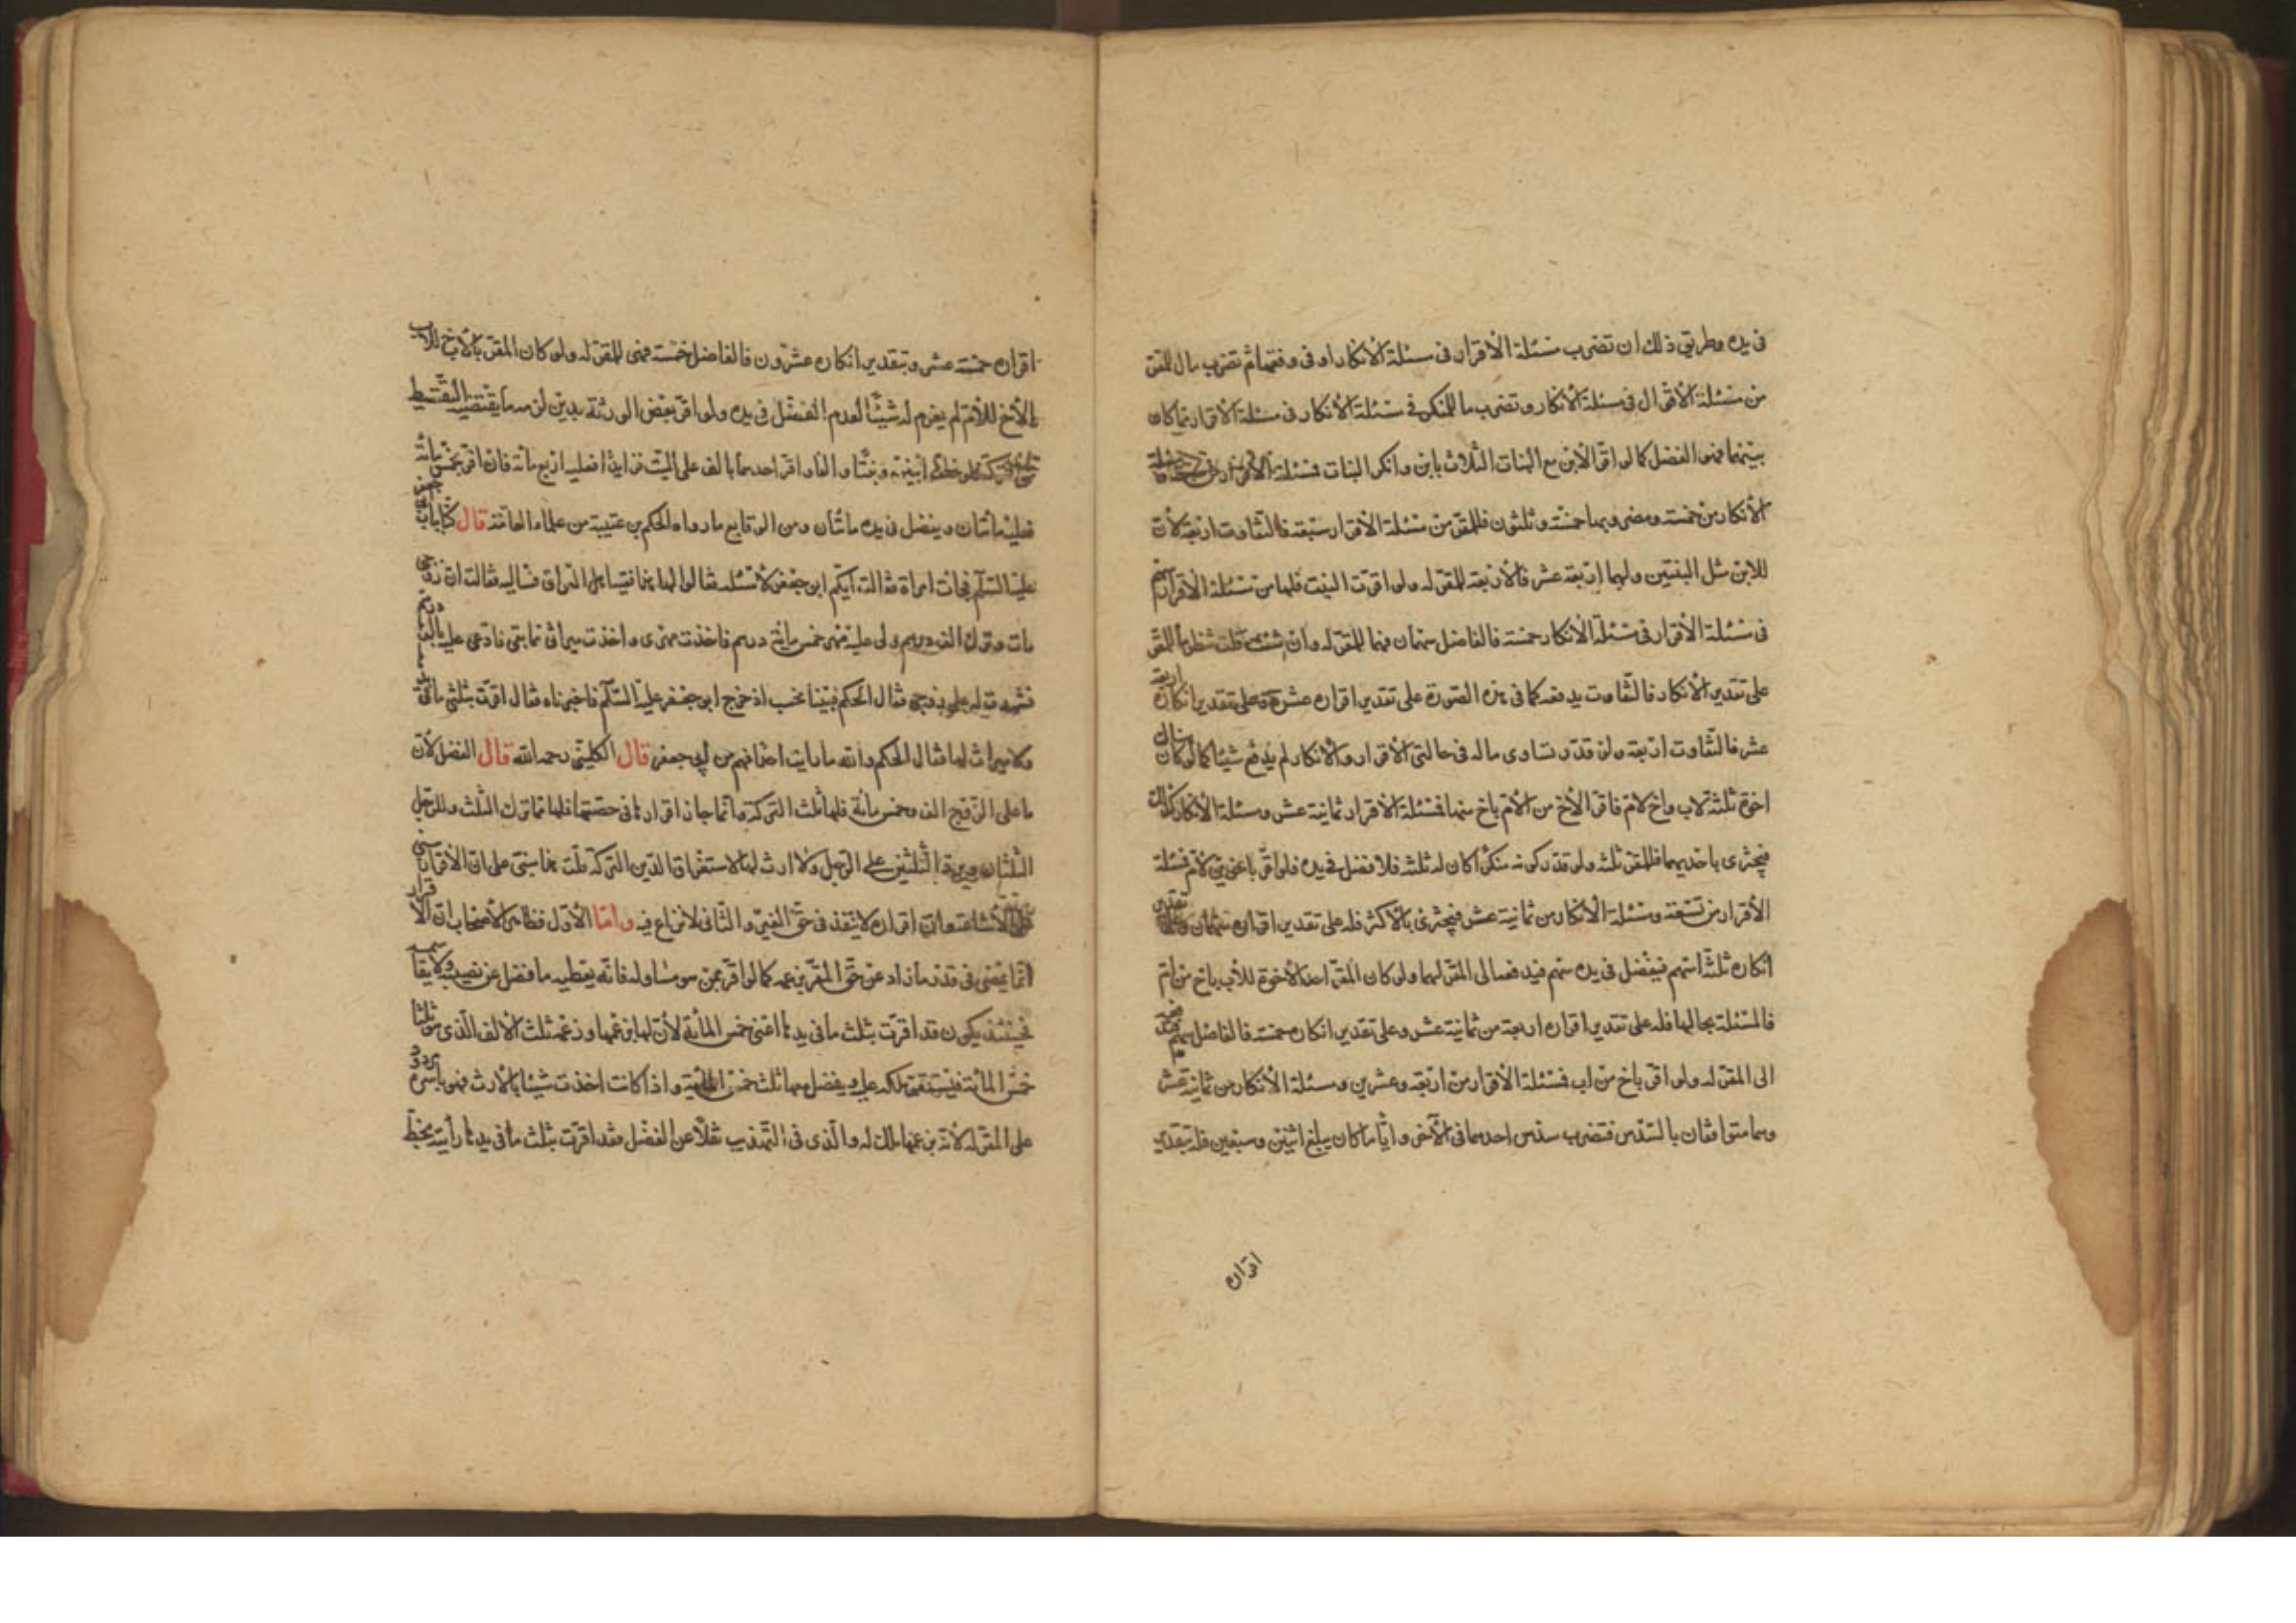 فى يده وطريق ذلك ان تضرب مسئلة الاقرار فى مسئلة الانكار او فى وفقهما ثم تضرب ما للمقر
من مسئلة الاقرار فى مسئلة الانكار وتضرب ما للمنكر فى مسئلة الانكار فى مسئلة الاقرار فما كان
بينهما فهو الفضل كما لو اقر الابن مع البنات الثلاث بابن وانكر البنات فمسئلة الاقرار من سبعة ومسئلة
الانكار من خمسة ومضروبهما خمسة وثلثون فللمقر من مسئلة الاقرار سبعة فالتفاوت اربعة لان
للابن مثل البنتين ولهما اربعة عشر فالاربعة للمقر له ولو اقرت البنت فلها من مسئلة الاقرار سهم
فى مسئلة الاقرار فى مسئلة الانكار خمسة فالفاضل سهمان فهما للمقر له وان شئت قلت تنظر ما للمقر
على تقدير الانكار فالتفاوت يدفعه كما فى هذه الصورة على تقدير اقراره عشرة وعلى تقدير انكاره اربعة
عشر فالتفاوت اربعة ولو قدر تساوى ماله فى حالتى الاقرار والانكار لم يدفع شيئا كما لو كان هناك
اخوة ثلثة لاب واخ لام فاقر الاخ من الام باخ منها فمسئلة الاقرار ثمانية عشر ومسئلة الانكار كذلك
فيجتزى باحديهما فللمقر ثلثة ولو قدر كونه منكرا كان له ثلثة فلا فضل فى يده فلو اقر باخوين لام فمسئلة
الاقرار من تسعة ومسئلة الانكار من ثمانية عشر فيجتزى بالاكثر فله على تقدير اقراره سهمان وعلى تقدير
انكاره ثلثة اسهم فيفضل فى يده سهم فيدفعه الى المقر لهما ولو كان المقر احد الاخوة للاب باخ من ام
فالمسئلة بحالها فله على تقدير اقراره اربعة من ثمانية عشر وعلى تقدير انكاره خمسة فالفاضل سهم فيدفعه
الى المقر له ولو اقر باخ من اب فمسئلة الاقرار من اربعة وعشرين ومسئلة الانكار من ثمانية عشر
وهما متوافقان بالسدس فتضرب سدس احدهما فى الآخر وايا ما كان يبلغ اثنين وسبعين فله بتقدير
اقراره
اقراره خمسة عشر وبتقدير انكاره عشرون فالفاضل خمسة فهى للمقر له ولو كان المقر بالاخ للاب
الاخ للام لم يغرم له شيئا لعدم الفضل فى يده ولو اقر بعض الورثة بدين لزمه ما يقتضيه التقسيط
على التركة فلو خلف ابنين وبنتا والفا واقر احدهما بالف على الميت فزايدا فعليه اربع مائة فان اقر بخمس مائة
فعليه مائتان ويفضل فى يده مائتان ومن الوقايع ما رواه الحكم بن عتيبة من علماء العامة قال كنا بباب ابى جعفر
عليه السلام فجاءت امراة فقالت ايكم ابو جعفر لاسئله فقالوا لها هذا فقيه اهل العراق فسليه فقالت ان زوجى
مات وترك الف درهم ولى عليه مهر خمس مائة درهم فاخذت مهرى واخذت ميراثى مما بقى فادعى عليه بالف درهم
فشهدت له على زوجى فقال الحكم فبينا نحسب اذ خرج ابو جعفر عليه السلام فاخبرناه فقال اقرت بثلثى ما فى يدها
ولا ميراث لها فقال الحكم والله ما رايت احدا افهم من ابى جعفر قال الكلينى رحمه الله قال الفضل لان
ما على الزوج الف وخمس مائة فلها ثلث التركة وانما جاز اقرارها فى حصتها فلها مما ترك الثلث وللرجل
الثلثان ويرد الثلثين على الرجل ولا ارث لها لاستغراق الدين التركة قلت هذا مبنى على ان الاقرار مبنى
على الاشاعة وان اقراره لا ينفذ فى حق الغير والثانى لا نزاع فيه واما الاول فظاهر الاصحاب ان الاقرار
انما يمضى فى قدر ما زاد عن حق المقر بزعمه كما لو اقر بمن هو مساو له فانه يعطيه ما فضل عن نصيبه ولا يقاسمه
فحينئذ يكون قد اقرت بثلث ما فى يدها اعنى خمس المائة لان لها بزعمها وزعمه ثلث الالف الذى هو ثلثا
خمس المائة فيستقر ملكها عليه ويفضل معها ثلث خمس المائة واذا كانت اخذت شيئا بالارث فهو باسره مردود
على المقر له لانه بزعمها ملك له والذى فى التهذيب نقلا عن الفضل فقد اقرت بثلث ما فى يدها رأيته بخط